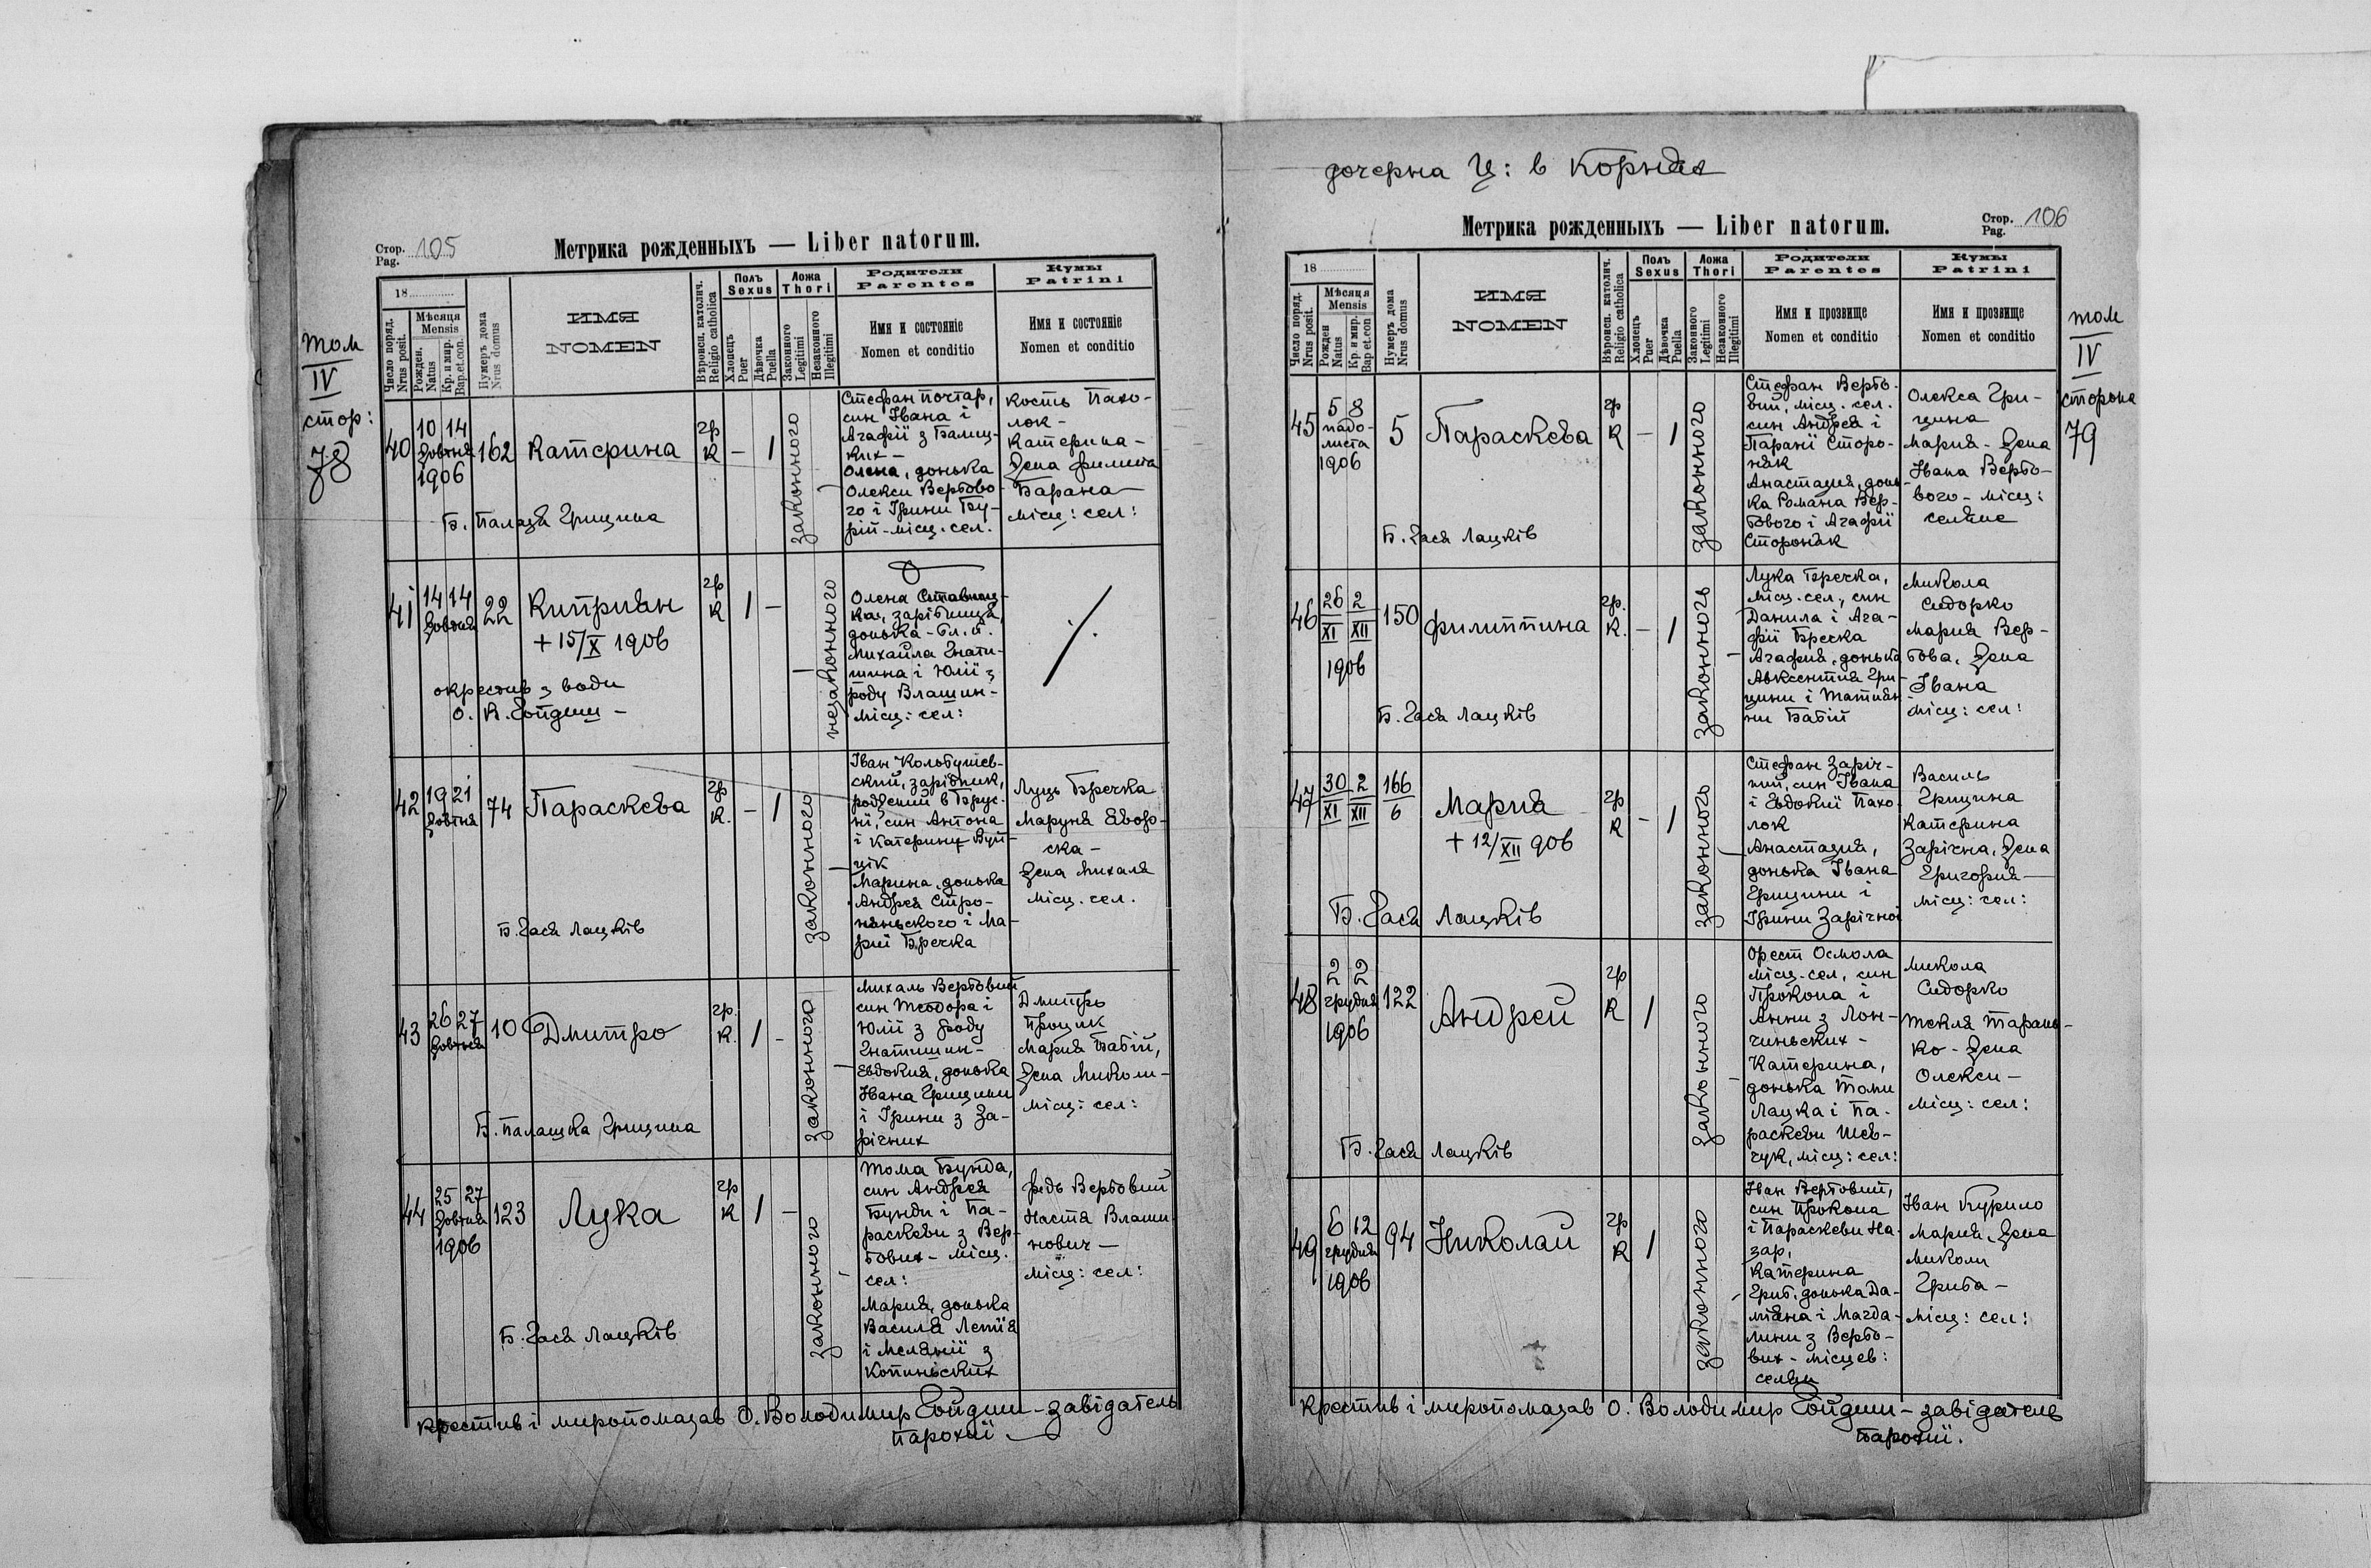 Стор.
Pag. 105
Метрика рожденныхъ — Liber natorum.
том
IV
стор:
78
18
Число поряд.
Nrus posit.
Мѣсяця
Mensis
Рожден.
Natus
Кр. и мир.
Bap.et.con.
Нумеръ дома
Nrus domus
ИМЯ
NOMEN
Вѣроисп. католич.
Religio catholica
Полъ
Sexus
Хлопець
Puer
Дѣвочка
Puella
Ложа
Thori
Законного
Legitimi
Незаконного
Illegitimi
Родители
Parentes
Имя и состояніе
Nomen et conditio
Кумы
Patrini
Имя и состояніе
Nomen et conditio
40
10 14
Жовтня
1906
162
Катерина
гр
К
–
1
законного
Стефан Почтар,
син Івана і
Агафії з Балиц-
ких –
Олена, донька
Олекси Вербово-
го і Ірини Бу-
рій – місц. сел.
Кость Пахо-
лок –
Катерина –
Жена Филипа
Барана –
місц: сел:
Б. Палазя Грицина
41
14 14
Жовтня
22
Киприян
+ 15/X 1906
гр
К
1
–
незаконного
Олена Ставниц-
ка, зарібниця,
донька – бл. п.
Михайла Гнати-
шина і Юлії з
роду Влашин –
місц: сел:
окрестив з води
о. В. Гойдиш –
42
19 21
Жовтня
74
Параскева
гр
К.
–
1
законного
Іван Колбушев-
ский, зарібник,
роджений в Брус-
ні, син Антона
і Катерини Вуй-
цік
Марина, донька
Андрея Стро-
няньского і Ма-
рії Бречка
Луць Бречка
Маруня Явор-
ска –
Жена Михаля
місц. сел.
Б. Гася Лацків
43
26 27
Жовтня
10
Дмитро
гр.
К.
1
–
законного
Михаль Вербовий
син Теодора і
Юлії з роду
Гнатишин –
Евдокия, донька
Івана Грицини
і Ірини з За-
річних
Дмитро
Процик
Мария Бабій,
Жена Миколи –
місц: сел:
Б. Палашка Грицина
44
25 27
Жовтня
1906
123
Лука
гр
К
1
–
законного
Тома Бунда,
син Андрея
Бунди і Па-
раскеви з Вер-
бових – місц.
сел:
Мария, донька
Василя Лепія
і Меланії з
Копиньских
Федь Вербовий
Настя Влаши-
нович –
місц: сел:
Б. Гася Лацків
Крестив і миропомазав О. Володимир Гойдиш – завідатель
парохії
дочерна Ц: в Корнях
Метрика рожденныхъ — Liber natorum.
Стор.
Pag. 106
том
IV
сторона
79
18
Число поряд.
Nrus posit.
Мѣсяця
Mensis
Рожден
Natus
Кр. и мир.
Bap et.con
Нумеръ дома
Nrus domus
ИМЯ
NOMEN
Вѣроисп. католич.
Religio catholica
Полъ
Sexus
Хлопець
Puer
Дѣвочка
Puella
Ложа
Thori
Законного
Legitimi
Незаконного
Illegitimi
Родители
Parentes
Имя и прозвище
Nomen et conditio
Кумы
Patrini
Имя и прозвище
Nomen et conditio
45
5 8
падо-
листа
1906
5
Параскева
гр
К
–
1
законного
Стефан Вербо-
вий, місц. сел.
син Андрея і
Паранї Сторо-
няк
Анастазия, донь-
ка Романа Вер-
бового і Агафії
Стороняк
Олекса Гри-
цина
Мария – Жена
Івана Вербо-
вого – місц:
селяне
Б. Гася Лацків
46
26 2
XI XII
1906
150
Филиппина
гр.
К.
–
1
законного
Лука Бречка,
місц. сел., син
Данила і Ага-
фії Бречка
Агафия, донька
Авксентия Гри-
цини і Татиян-
ни Бабій
Микола
Сидорко
Мария Вер-
бова, Жена
Івана
місц: сел:
Б. Гася Лацків
47
30 2
XI XII
166
6
Мария
+ 12/XII 906
гр
К
–
1
законного
Стефан Заріч-
ний, син Івана
і Евдокиї Пахо-
лок
Анастазия,
донька Івана
Грицини і
Ірини Зарічної
Василь
Грицина
Катерина
Зарічна, Жена
Григория –
місц: сел:
Б. Гася Лацків
48
2 2
грудня
1906
122
Андрей
гр
К
1
законного
Орест Осмола
місц. сел, син
Прокопа і
Анни з Лон-
чиньских –
Катерина,
донька Томи
Лацка і Па-
раскеви Шев-
чук, місц: сел:
Микола
Сидорко
Текля Тарань-
ко – Жена
Олекси –
місц: сел:
Б. Гася Лацків
49
6 12
грудня
1906
94
Николай
гр
К
1
законного
Іван Вербовий,
син Прокопа
і Параскеви На-
зар,
Катерина
Гриб, донька Да-
мяна і Магда-
лини з Вербо-
вих – місцев:
селян
Іван Курило
Мария, Жена
Миколи
Гриба –
місц: сел:
Крестив і миропомазав О. Володимир Гойдиш – завідатель
парохії.